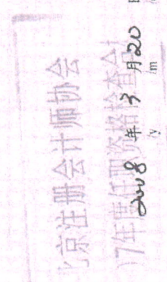 北京注册会计师协会
17年度任职资格检查合
2008年3月20
/y /m